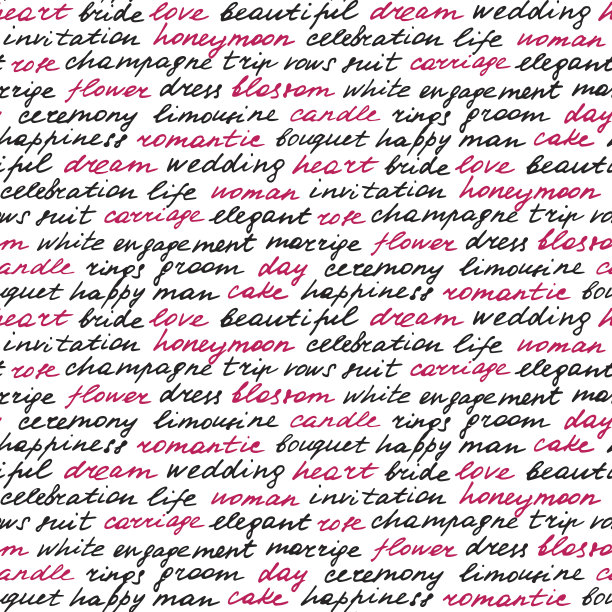 heart bride love beautiful dream wedding h
invitation honeymoon celebration life woman
t rose champagne trip vows suit carriage elegant
rrige flower dress blossom white engagement mar
ceremony limousine candle rings groom day
happiness romantic bouquet happy man cake
iful dream wedding heart bride love beauti
celebration life woman invitation honeymoon
ows suit carriage elegant rose champagne trip vo
om white engagement marrige flower dress blosso
andle rings groom day ceremony limousine c
uquet happy man cake happiness romantic bou
heart bride love beautiful dream wedding h
invitation honeymoon celebration life woman
t rose champagne trip vows suit carriage elegant
rrige flower dress blossom white engagement mar
ceremony limousine candle rings groom day
happiness romantic bouquet happy man cake
iful dream wedding heart bride love beauti
celebration life woman invitation honeymoon
ows suit carriage elegant rose champagne trip vo
om white engagement marrige flower dress blosso
andle rings groom day ceremony limousine c
uquet happy man cake happiness romantic bou